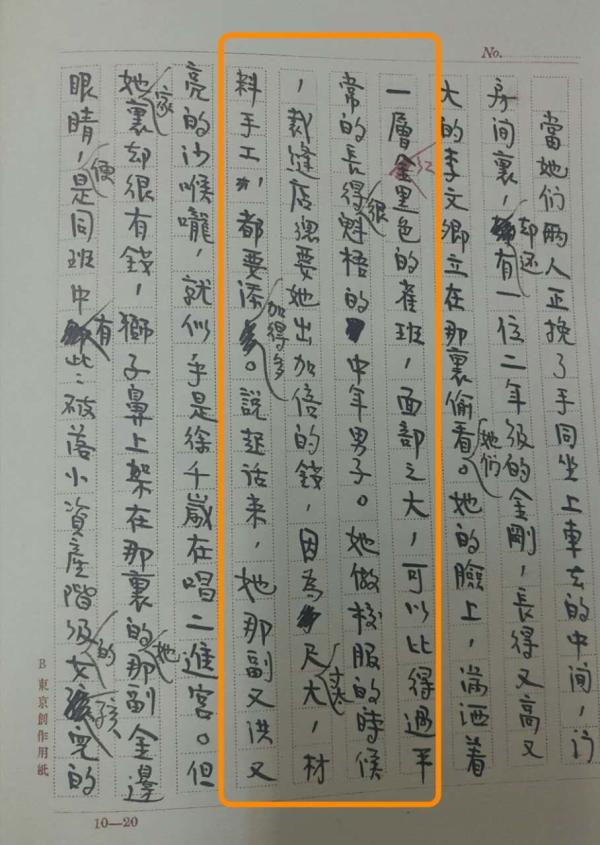 No.
當她们兩人正挽了手同坐上車去的中间，门
房间裏，却还有一位二年级的金剛，長得又高又
大的李文卿立在那裏偷看她们。她的臉上，滿洒着
一層红黑色的雀班，面部之大，可以比得過平
常的長得很魁梧的中年男子。她做校服的時候
，裁縫店總要她出加倍的錢，因為尺寸太大，材
料手工，都要添加得多。說起话来，她那副又洪又
亮的沙喉嚨，就似乎是徐千歲在唱二進宮。但
她家裏却很有錢，獅子鼻上架在那裏的她那副金邊
眼睛，便是同班中有些破落小資産階级的女孩兒的
B 東京創作用紙
10—20